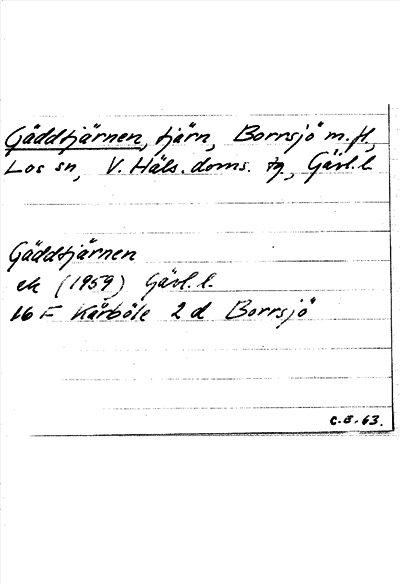 Gäddtjärnen, tjärn, Borrsjö m.fl,
Los sn, V. Häls. doms. tg, Gävl.l.
Gäddtjärnen
ek (1959) Gävl.l.
16 F Kårböle 2 d Borrsjö
C.E.63.